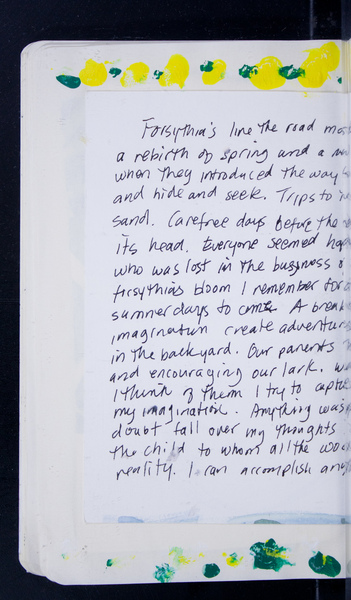 Forsythia's line the road
a rebirth of spring and a
when they introduced the way
and hide and seek. Trips to
sand. Carefree days before the
its head. Everyone seemed
who was lost in the
firsythia's bloom I remember
summer days to come. A break
imagination create adventures
in the backyard. Our parents
and encouraging our lark.
I think of them I try to
my imagination. Anything was
doubt fall over my thoughts
the child to whom all the
reality. I can accomplish